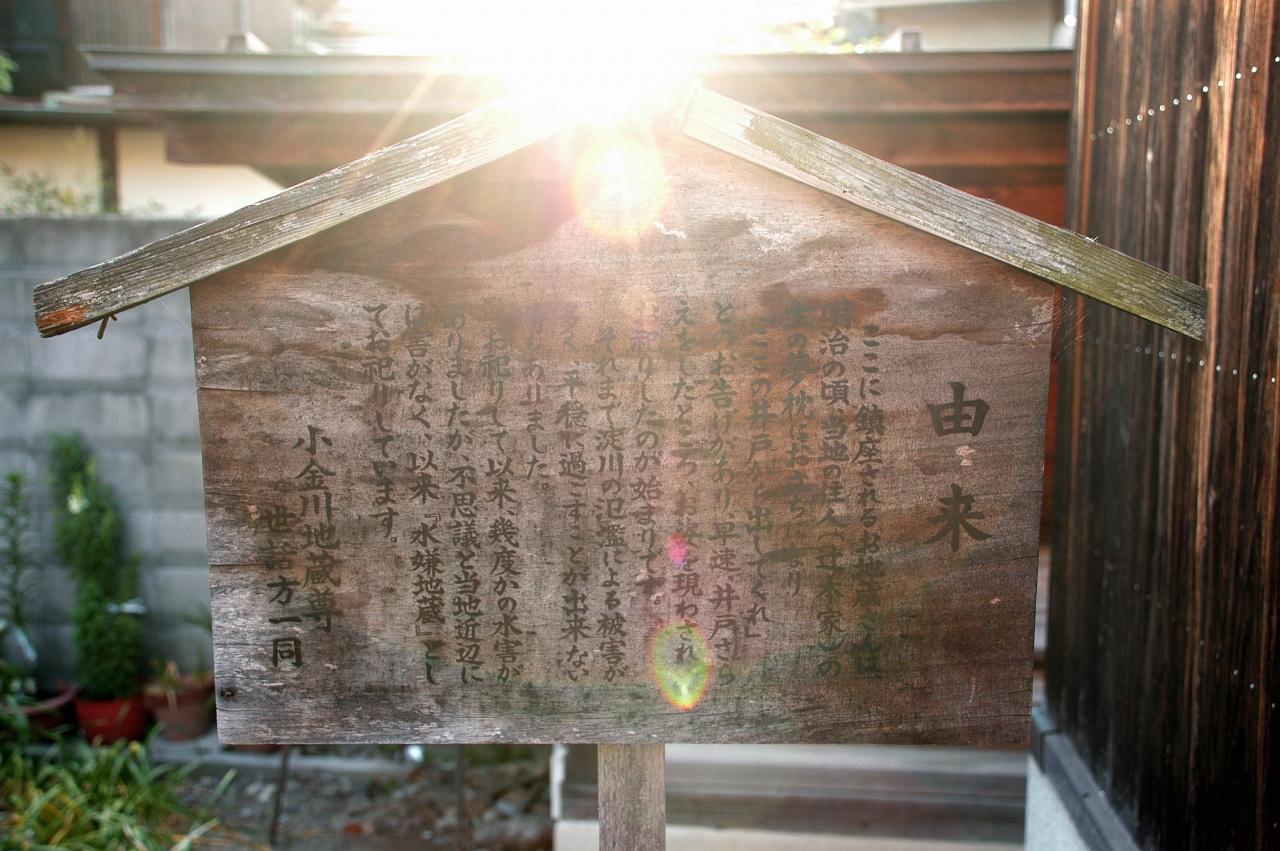 由来
ここに鎮座されるお地蔵さんは
明治の頃、当地の住人(辻本家)の
主の夢枕にお立ちになり
「ここの井戸から出してくれ」
とのお告げがあり、早速、井戸さら
えをしたところ、お姿を現わされ
お祀りしたのが始まりです。
それまで淀川の氾濫による被害が
多く、平穏に過ごすことが出来ない
時もありました。
お祀りして以来、幾度かの水害が
ありましたが、不思議と当地近辺に
は害がなく、以来『水嫌地蔵』とし
てお祀りしています。
小金川地蔵尊
世話方一同